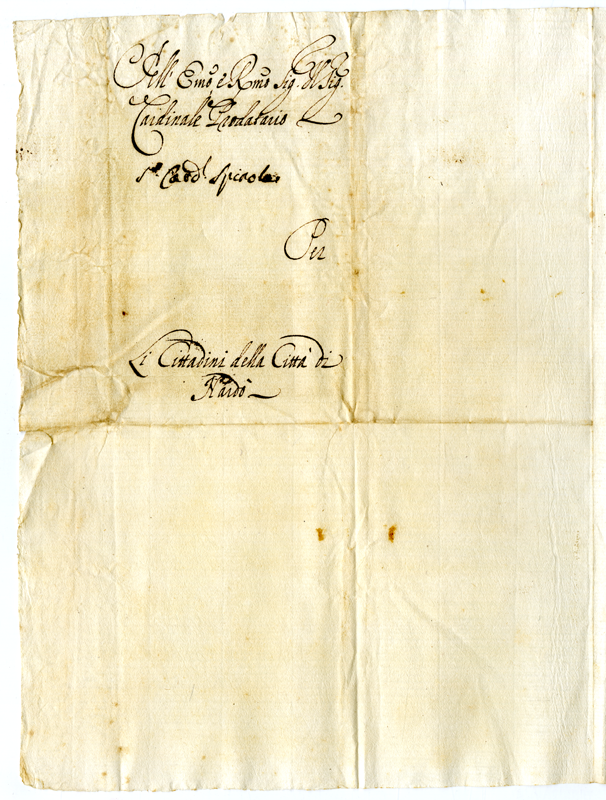 All' Emo, e Rmo Sig. Il Sig.
Cardinale Prodatario
Sr. Card.l Spinola
Per
Li Cittadini della Città di
Nardò